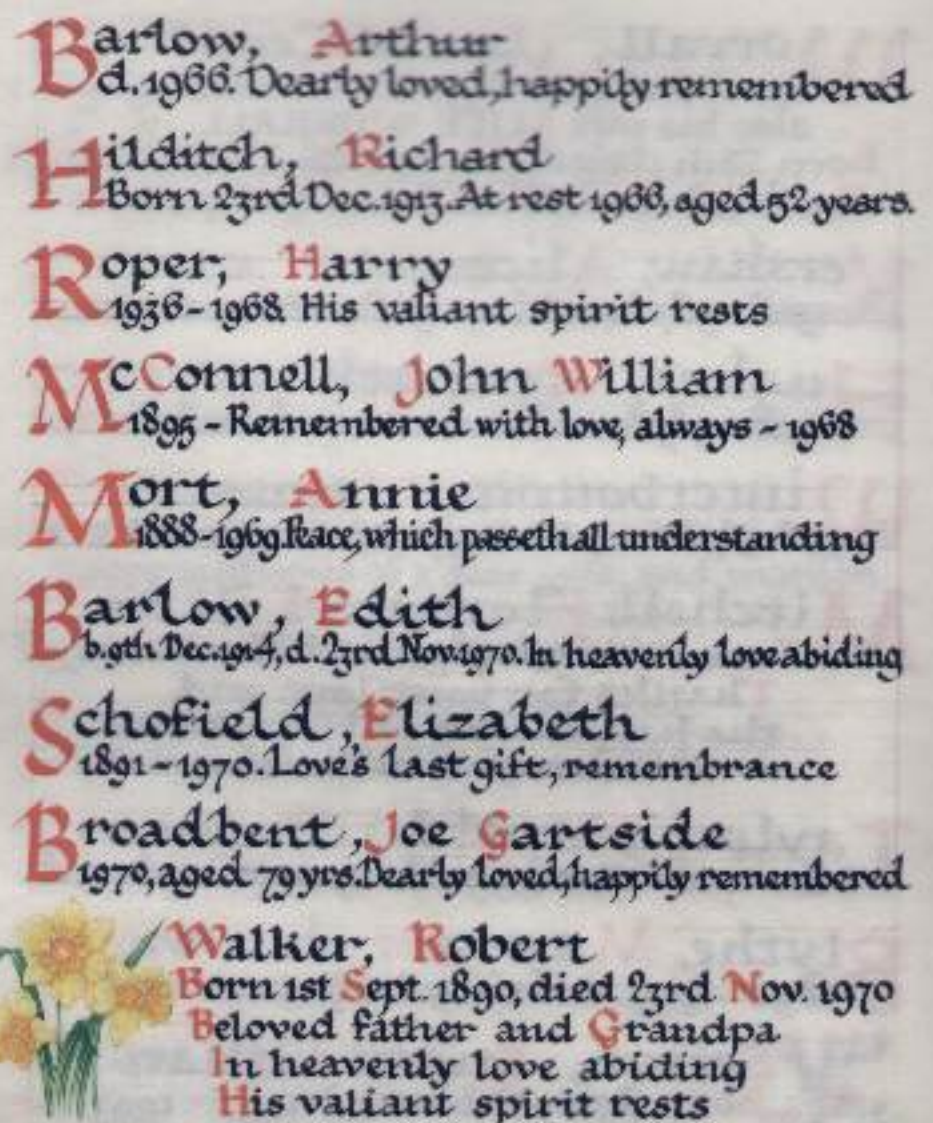 Barlow, Arthur
d. 1966. Dearly loved, happily remembered
Hilditch, Richard
Born 23rd Dec. 1913. At rest 1966, aged 52 years.
Roper, Harry
1936 - 1968. His valiant spirit rests
McConnell, John William
1895 - Remembered with love, always - 1968
Mort, Annie
1888-1969. Peace, which passeth all understanding
Barlow, Edith
b. 9th Dec. 1914, d. 23rd Nov. 1970. In heavenly love abiding
Schofield, Elizabeth
1891 - 1970. Love's last gift, remembrance
Broadbent, Joe Gartside
1970, aged 79 yrs. Dearly loved, happily remembered
Walker, Robert
Born 1st Sept. 1890, died 23rd Nov. 1970
Beloved father and Grandpa
In heavenly love abiding
His valiant spirit rests